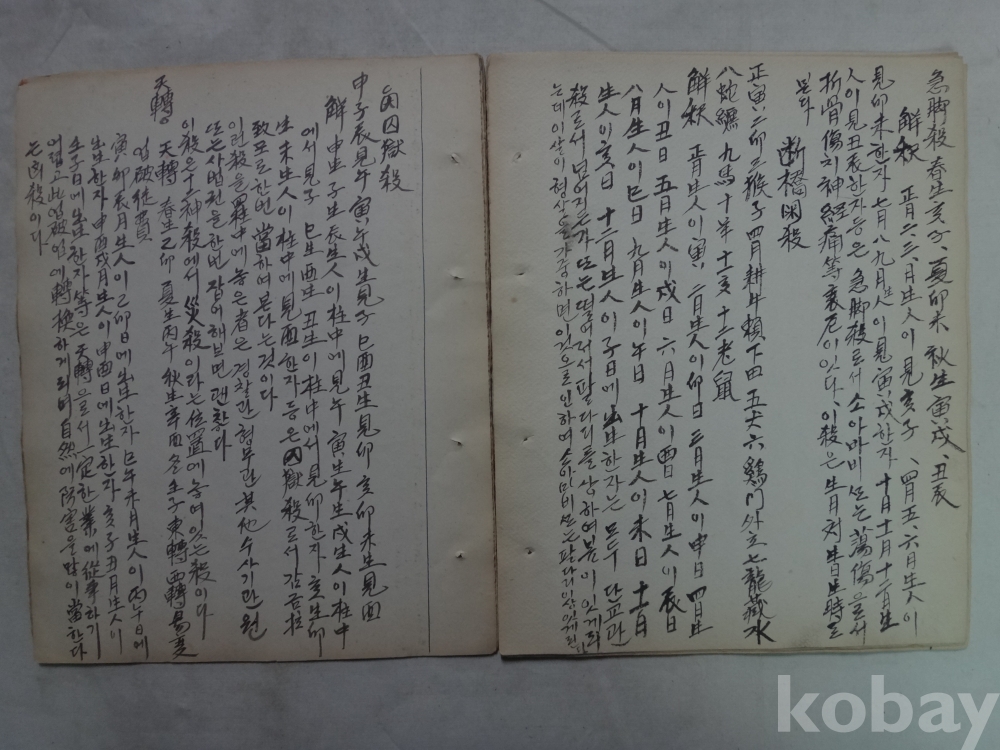 急脚殺 春生亥子、夏卯未 秋生寅戌、丑辰
解釈 正月二、三、月生人이 見亥子、四月五、六月生人이
見卯未한자 七月八九月生人이 見寅戌한자 十月十一月十二月生
人이 見丑辰한자 등은 急脚殺로서 소아마비 또는 落傷으로서
折骨傷치 神經痛等 이 있다、이殺은 生月対 生日生時로
본다
断橋関殺
正寅二卯三猴子 四月耕牛頼下 四五犬六鷄門外立七龍蔵水
八蛇纏 九馬十年 十一亥十二老鼠
解釈 正月生人이 寅、二月生人이 卯日 三月生人이 申日 四月生
人이 丑日 五月生人이 戌日 六月生人이 酉日 七月生人이 辰日
八月生人이 巳日 九月生人이 午日 十月生人이 未日 十一月
生人이 亥日 十二月生人이 子日에 出生한자는 모두 단교관
殺로서 넘어지든가 또는 떨어저서 팔다리를 상하여본 이 있게되
는데 이상이 현상 가중하면 인하여 소아마비 또는 팔다리
囚獄殺
申子辰見午 寅午戌生見子 巳酉丑生見卯 亥卯未生見酉
解 申生子生辰生人이 柱中에 見午 寅生午生戌生人이 柱中
에서 見子 巳生酉生 丑生이 柱中에서 見卯한자 亥生卯
生 未生人이 柱中에 見酉한자 등은 囚獄殺로서 감금
致포로 한번 當하여 본다는 것이다
이런殺을 中에 놓은 者은 경찰관 형무관 其他 수사기관 원
또는 사법관을 한번 잡어해보면 괜찬다
이殺은 十二神殺에서 災殺이라는 位置에 놓여 있는 殺이다
天轉 天轉 春生乙卯 夏生丙午 秋生辛酉 冬壬子 東轉西轉
業破從
寅卯辰月生人이 乙卯日에 出生한자 巳午未月生人이 丙午日에
出生한자 申酉戌月生人이 日에 出生한자 亥子丑月生人이
壬子日에 出生한자 等은 天轉으로서 一定한 業에 從事하기
어렵고 業에 轉換하게 되며 自然에 이 當한다
는 殺이다
kobay